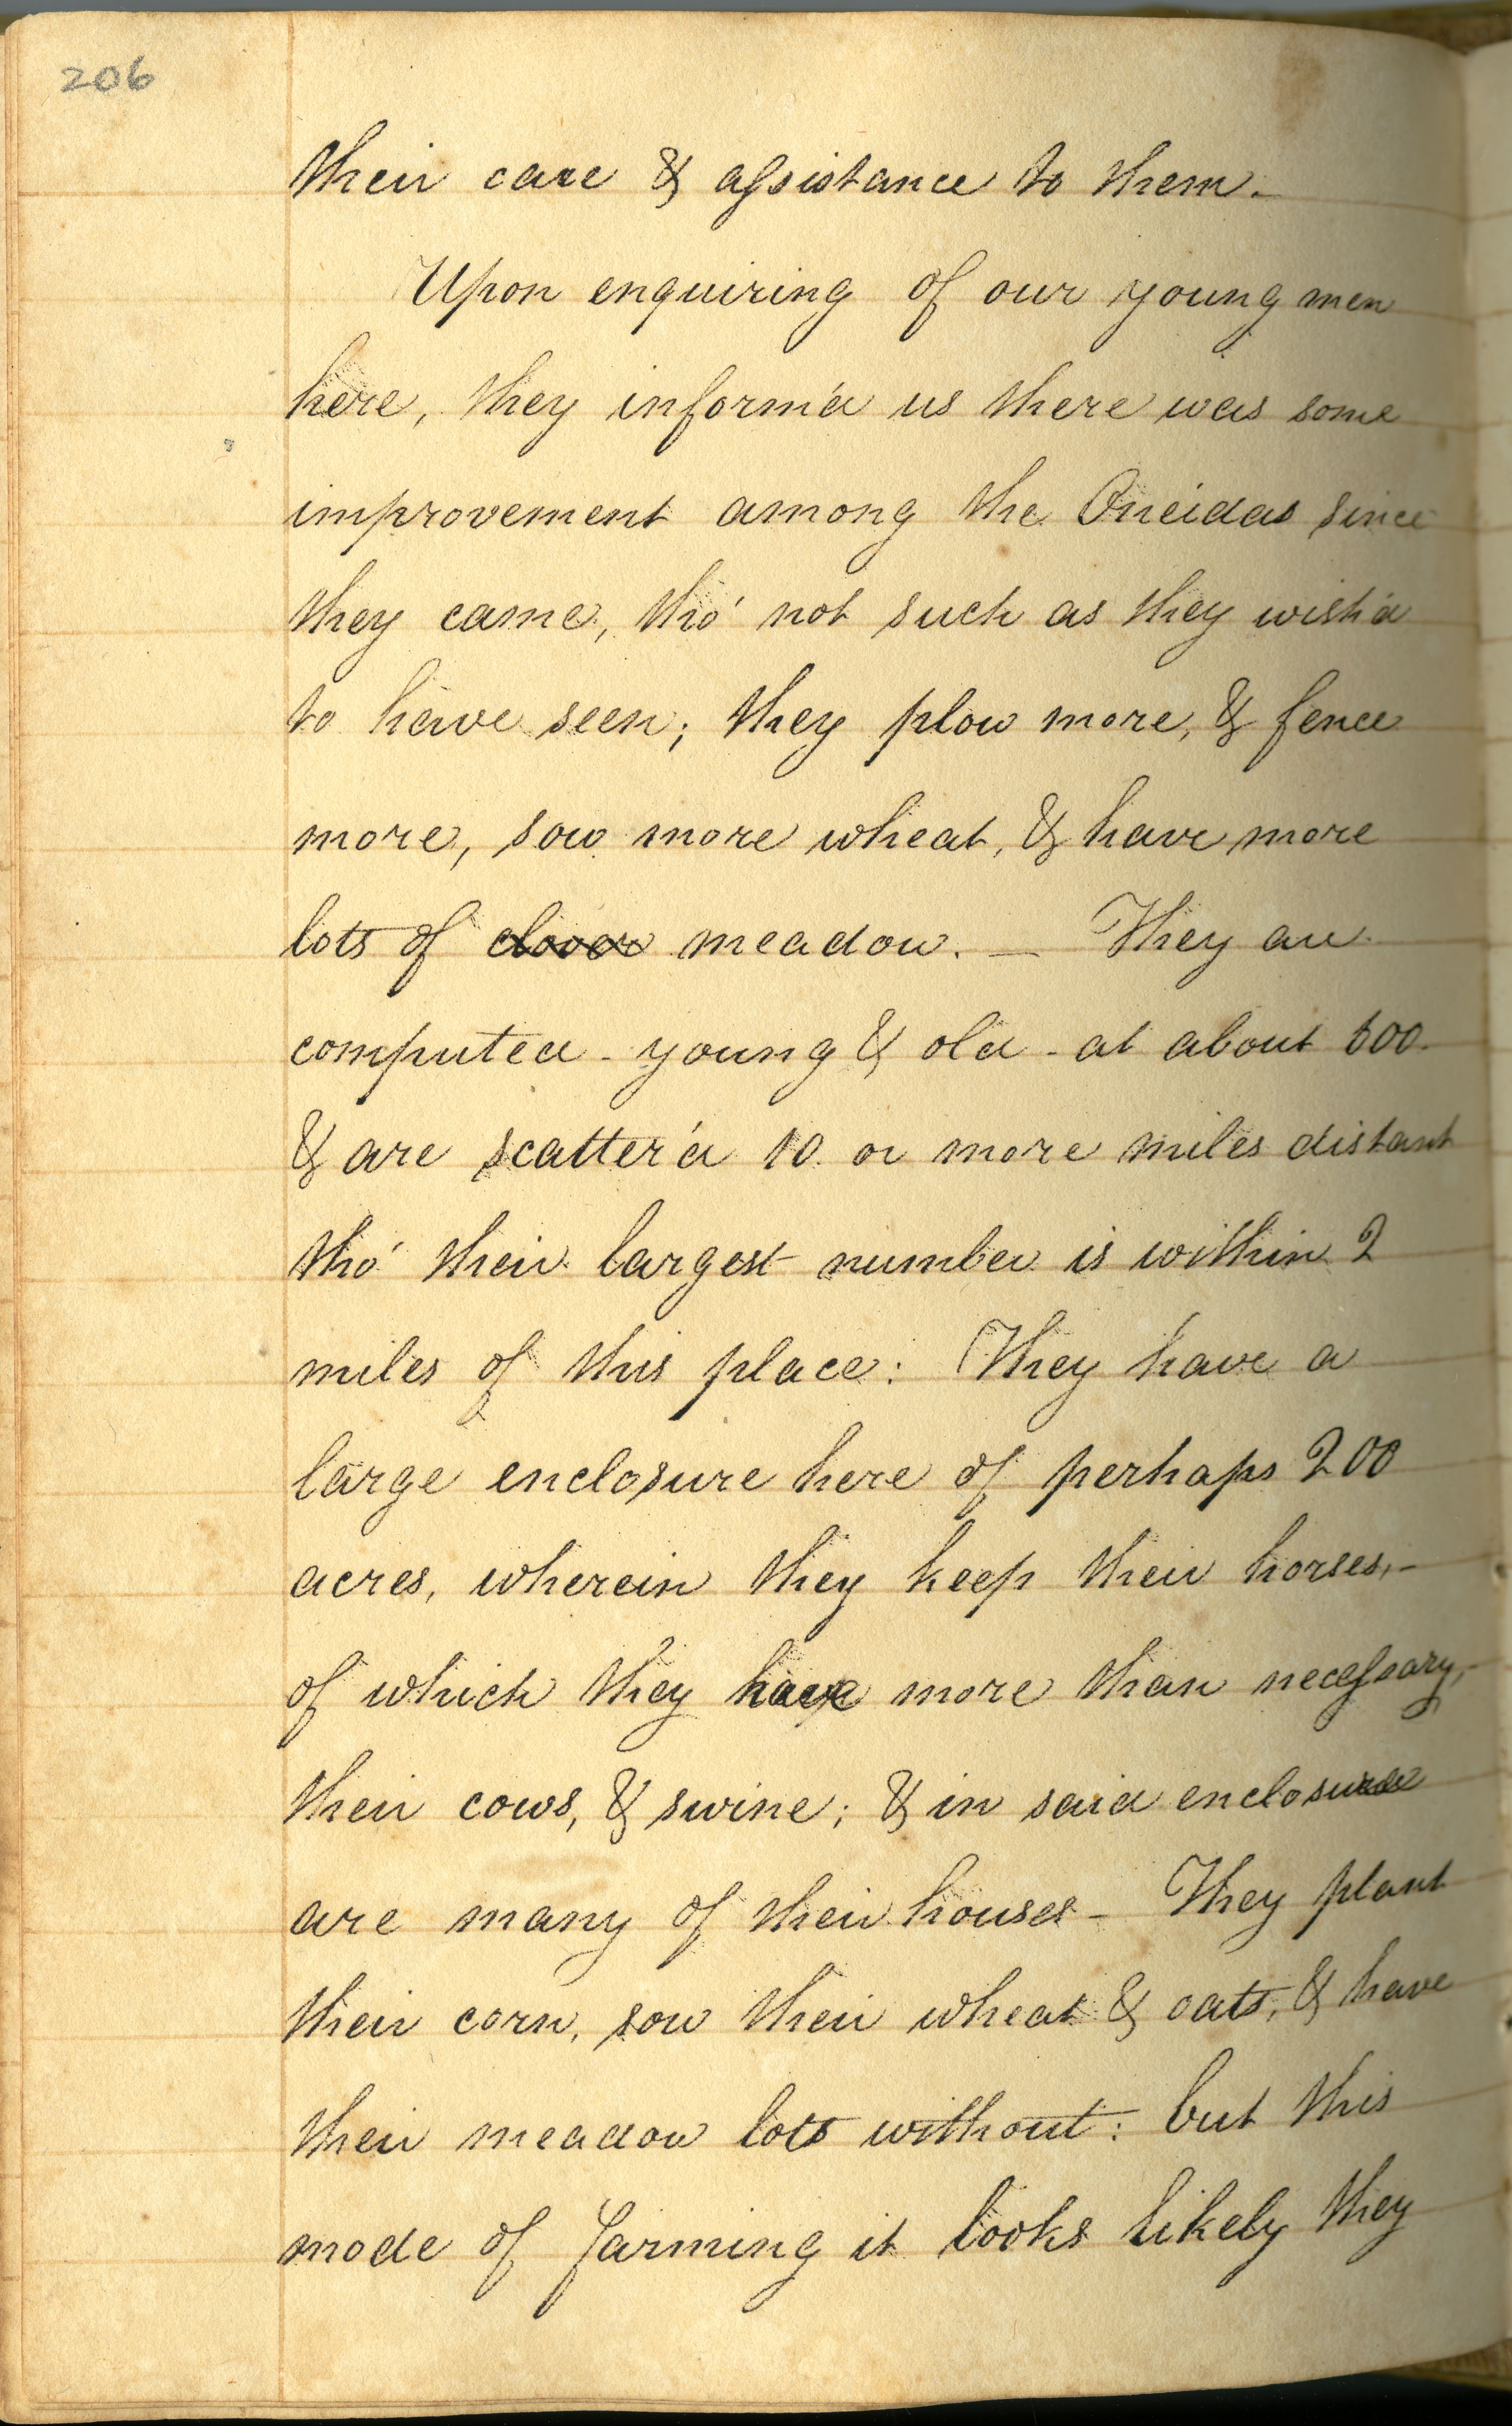 206
their care & assistance to them. -
Upon enquiring of our young men
here, they inform'd us there was some
improvement among the Oneidas since
they came, tho' not such as they wish'd
to have seen; they plow more, & fence
more, sow more wheat, & have more
lots of clover meadow. — They are
computed - young & old - at about 600 -
& are scatter'd 10 or more miles distant
tho' their largest number is within 2
miles of this place: They have a
large enclosure here of perhaps 200
acres, wherein they keep their horses, -
of which they have more than necessary, -
their cows, & swine; & in said enclosure
are many of their houses - They plant
their corn, sow their wheat & oats, & have
their meadow lots without: but this
mode of farming it looks likely they